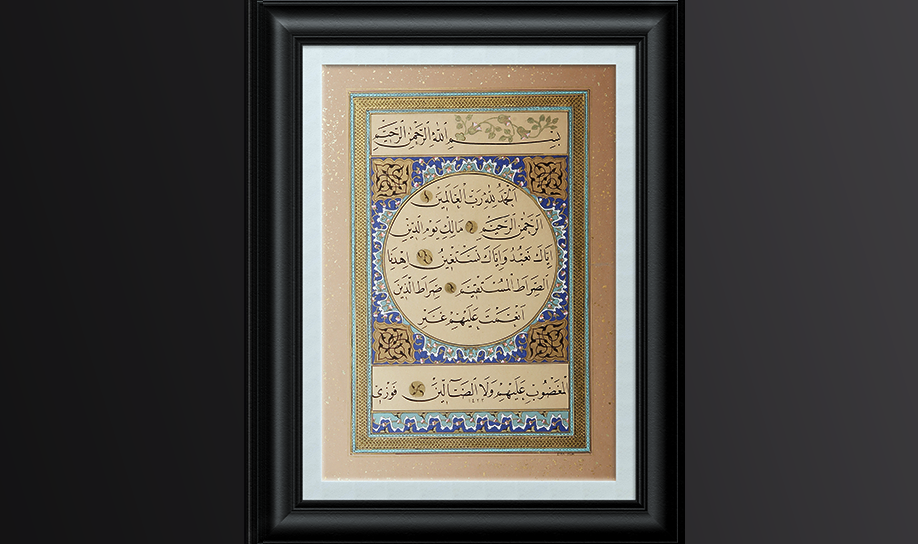 بِسْمِ اللّٰهِ الرَّحْمٰنِ الرَّحِيْمِ
اَلْحَمْدُ لِلّٰهِ رَبِّ الْعَالَمِيْنَ
اَلرَّحْمٰنِ الرَّحِيْمِ مَالِكِ يَوْمِ الدِّيْنِ
اِيَّاكَ نَعْبُدُ وَاِيَّاكَ نَسْتَعِيْنُ اِهْدِنَا
الصِّرَاطَ الْمُسْتَقِيْمَ صِرَاطَ الَّذِيْنَ
اَنْعَمْتَ عَلَيْهِمْ غَيْرِ
الْمَغْضُوْبِ عَلَيْهِمْ وَلَا الضَّآلِّيْنَ فوزى
١٤٢٣